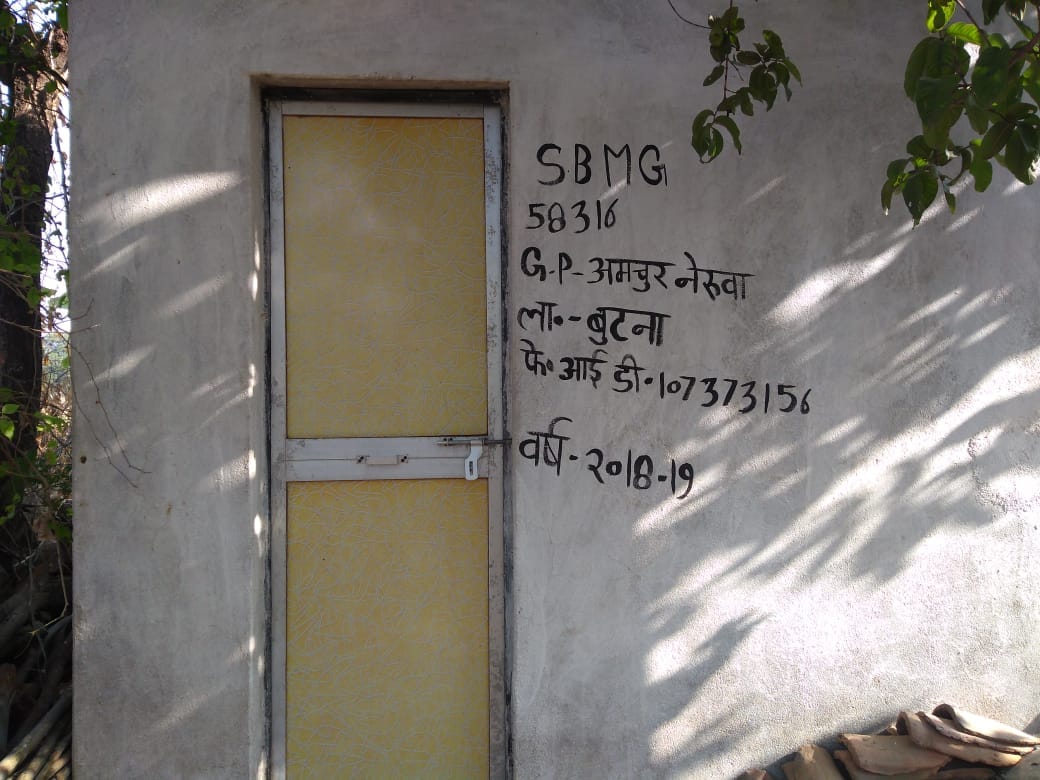 SBMG
58316
G.P-अमचुर नेरुवा
ला०-बुटना
फे० आई डी.107373156
वर्ष-२०18-19